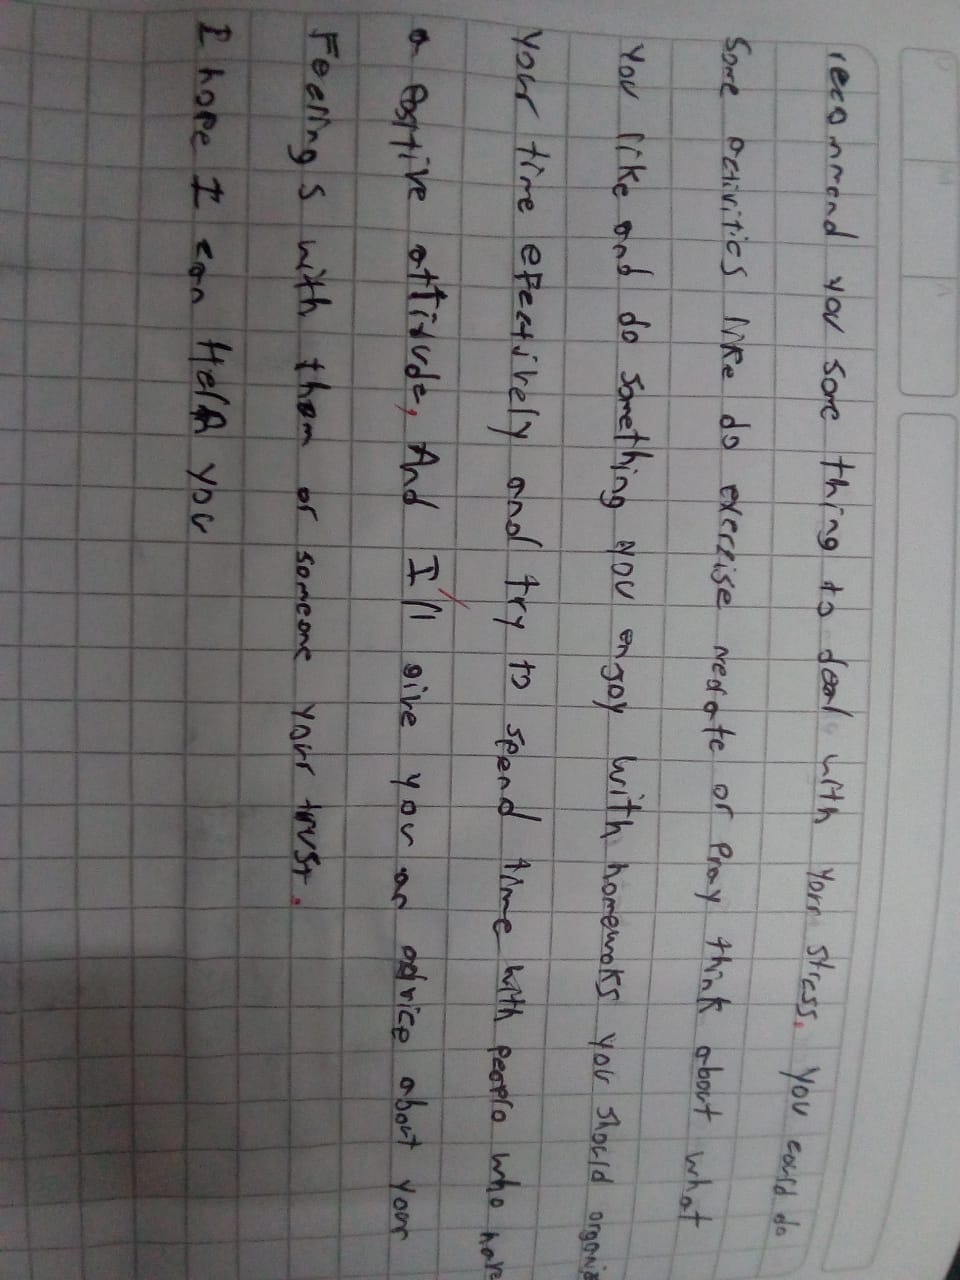 recommend you some thing to deal with your stress. You could do
Some activities like do exercise medate or pray think about what
You like and do something you enjoy with homewoks you should organiz
Your time efectively and try to spend time with people who have
a positive attitude, And I'll give you an advice about your
Feelings with them or someone your trust.
I hope I can Help you